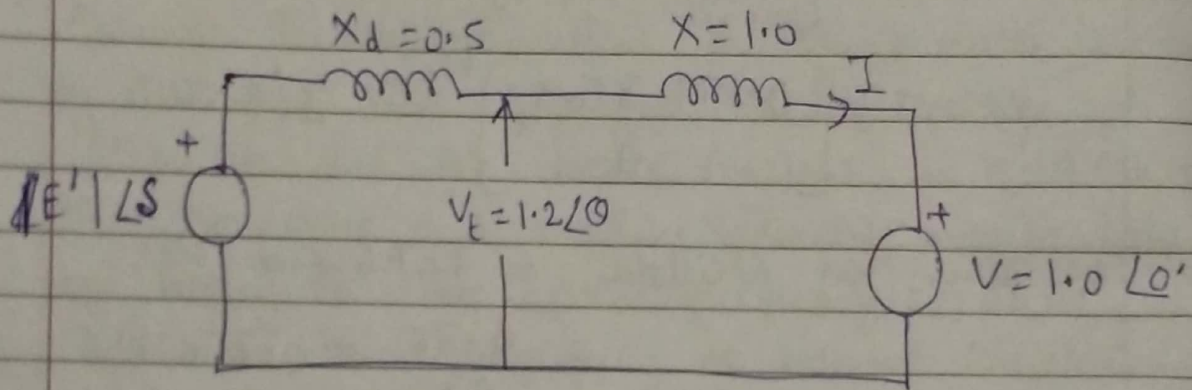 Xd = 0.5
X = 1.0
I
+
|E'| ∠δ
Vt = 1.2∠θ
+
V = 1.0 ∠0°